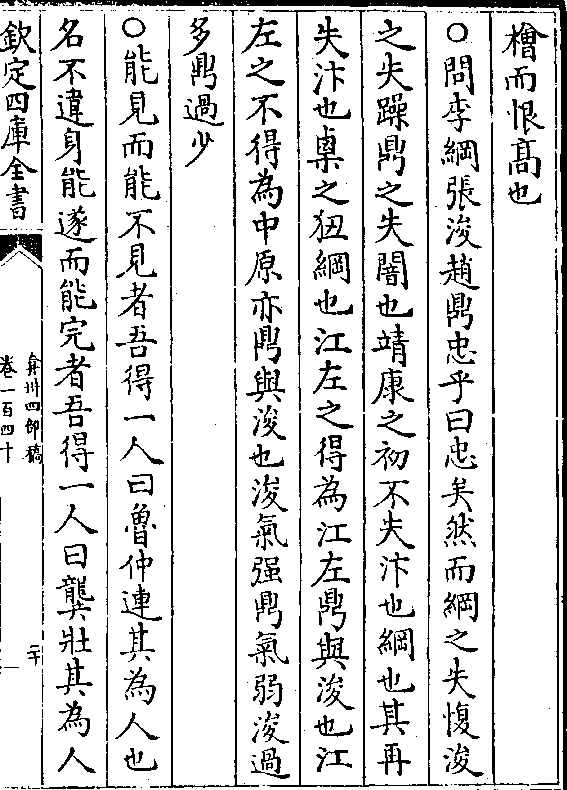 檜而恨髙也
○問李綱張浚趙鼎忠乎曰忠矣然而綱之失愎浚
之失躁鼎之失闇也靖康之初不失汴也綱也其再
失汴也㮚之狃綱也江左之得為江左鼎與浚也江
左之不得為中原亦鼎與浚也浚氣强鼎氣弱浚過
多鼎過少
○能見而能不見者吾得一人曰魯仲連其為人也
名不違身能遂而能完者吾得一人曰龔壯其為人
欽定四庫全書
弇州四部稿
卷一百四十
二十